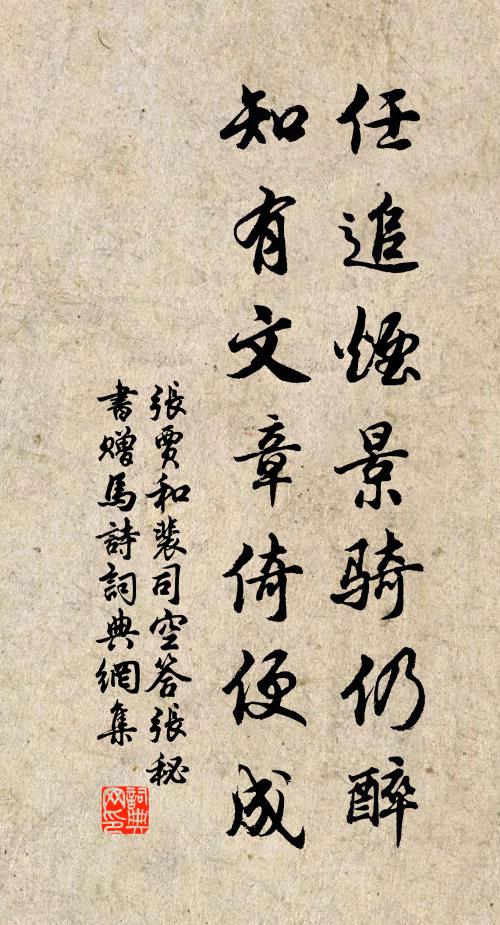 任追煙景騎仍醉
知有文章倚便成
張賈和裴司空答張秘
書贈馬詩詞典網集
詞典
网印